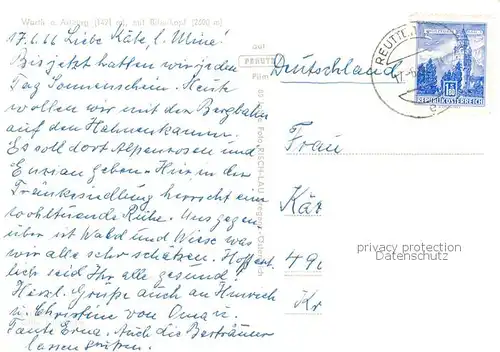 Warth a. Arlberg (1494 m), mit Biberkopf (2600 m)
17.6.66 Liebe Käte, l. Mine!
Bis jetzt hatten wir jeden
Tag Sonnenschein. Heute
wollen wir mit der Bergbahn
auf den Hahnenkamm.
Es soll dort Alpenrosen und
Enzian geben. Hier in der
herrscht eine
wohltuende Ruhe. Uns gegen
über ist Wald und Wiese was
wir alle sehr schätzen. Hoffent
lich seid Ihr alle gesund!
Herzl. Grüße auch an Hinrich
u. Christine von Oma u.
Tante Erna. Auch die
lassen grüßen.
auf
PERUTZ
Film
Foto RISCH-LAU, Bregenz
Deutschland
REUTTE
REPUBLIK ÖSTERREICH
Frau
Kär
490
Kr
privacy protection
Datenschutz